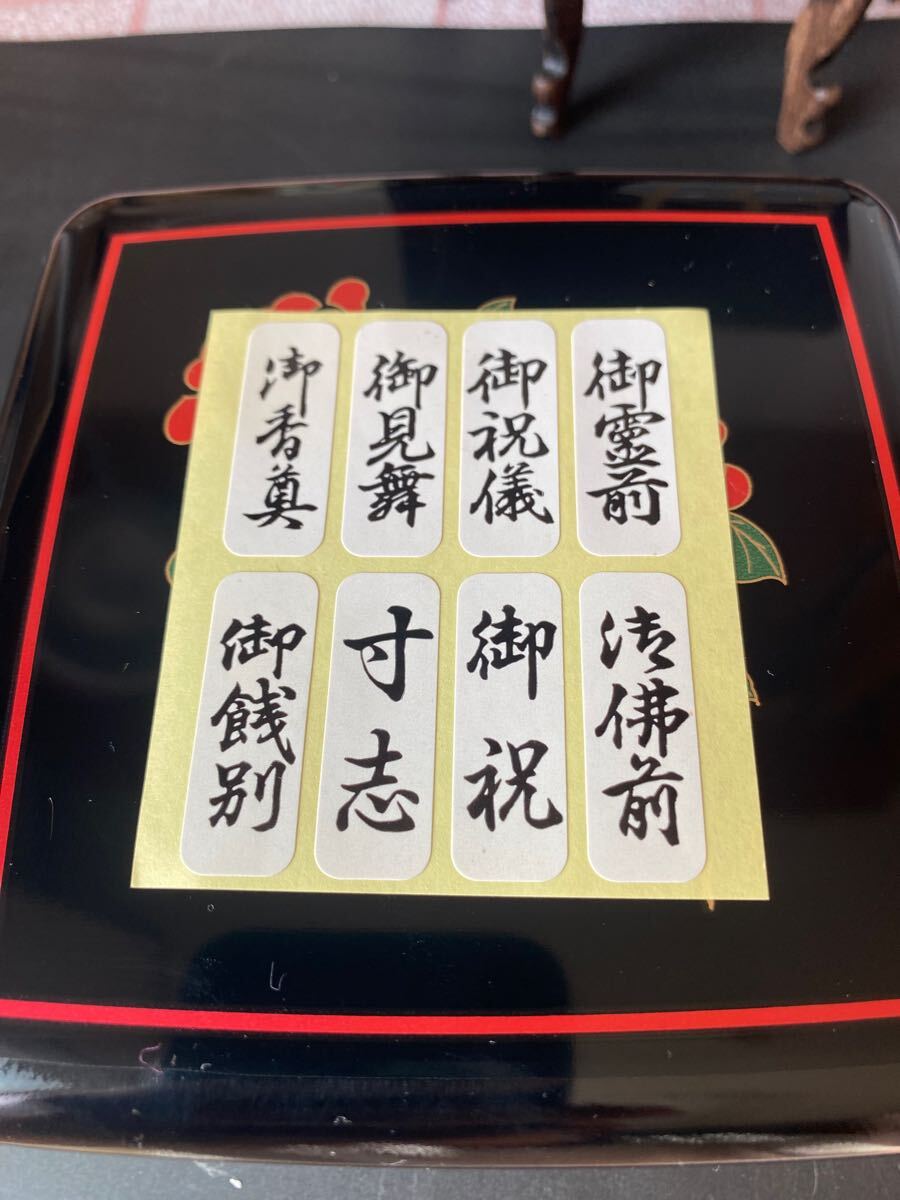 御霊前
御祝儀
御見舞
御香奠
御佛前
御祝
寸志
御餞別